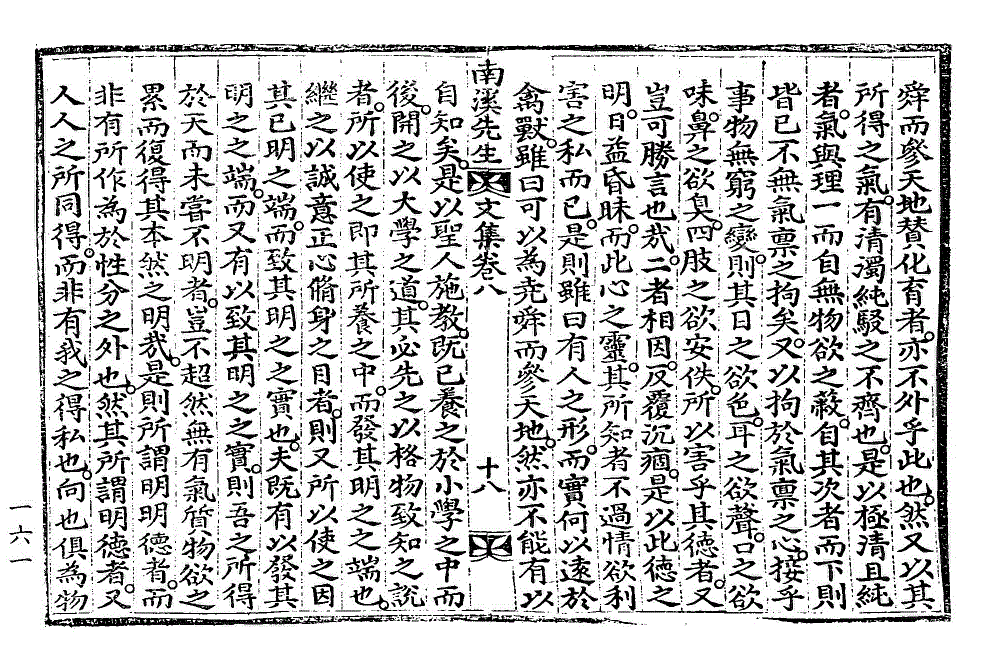 舜而參天地贊化育者。亦不外乎此也。然又以其
所得之氣。有清濁純駁之不齊也。是以極清且純
者。氣與理一而自無物欲之蔽。自其次者而下則
皆已不無氣稟之拘矣。又以拘於氣稟之心。接乎
事物無窮之變。則其目之欲色。耳之欲聲。口之欲
味。鼻之欲臭。四肢之欲安佚。所以害乎其德者。又
豈可勝言也哉。二者相因。反覆沉痼。是以此德之
明。日益昏昧。而此心之靈。其所知者不過情欲利
害之私而已。是則雖曰有人之形。而實何以遠於
禽獸。雖曰可以為堯舜而參天地。然亦不能有以
南溪先生文集卷八 十八
自知矣。是以聖人施教。旣已養之於小學之中而
後。開之以大學之道。其必先之以格物致知之說
者。所以使之即其所養之中。而發其明之之端也。
繼之以誠意正心脩身之目者。則又所以使之因
其已明之端。而致其明之之實也。夫旣有以發其
明之之端。而又有以致其明之之實。則吾之所得
於天而未嘗不明者。豈不超然無有氣質物欲之
累而復得其本然之明哉。是則所謂明明德者。而
非有所作為於性分之外也。然其所謂明德者。又
人人之所同得。而非有我之得私也。向也俱為物
一六一